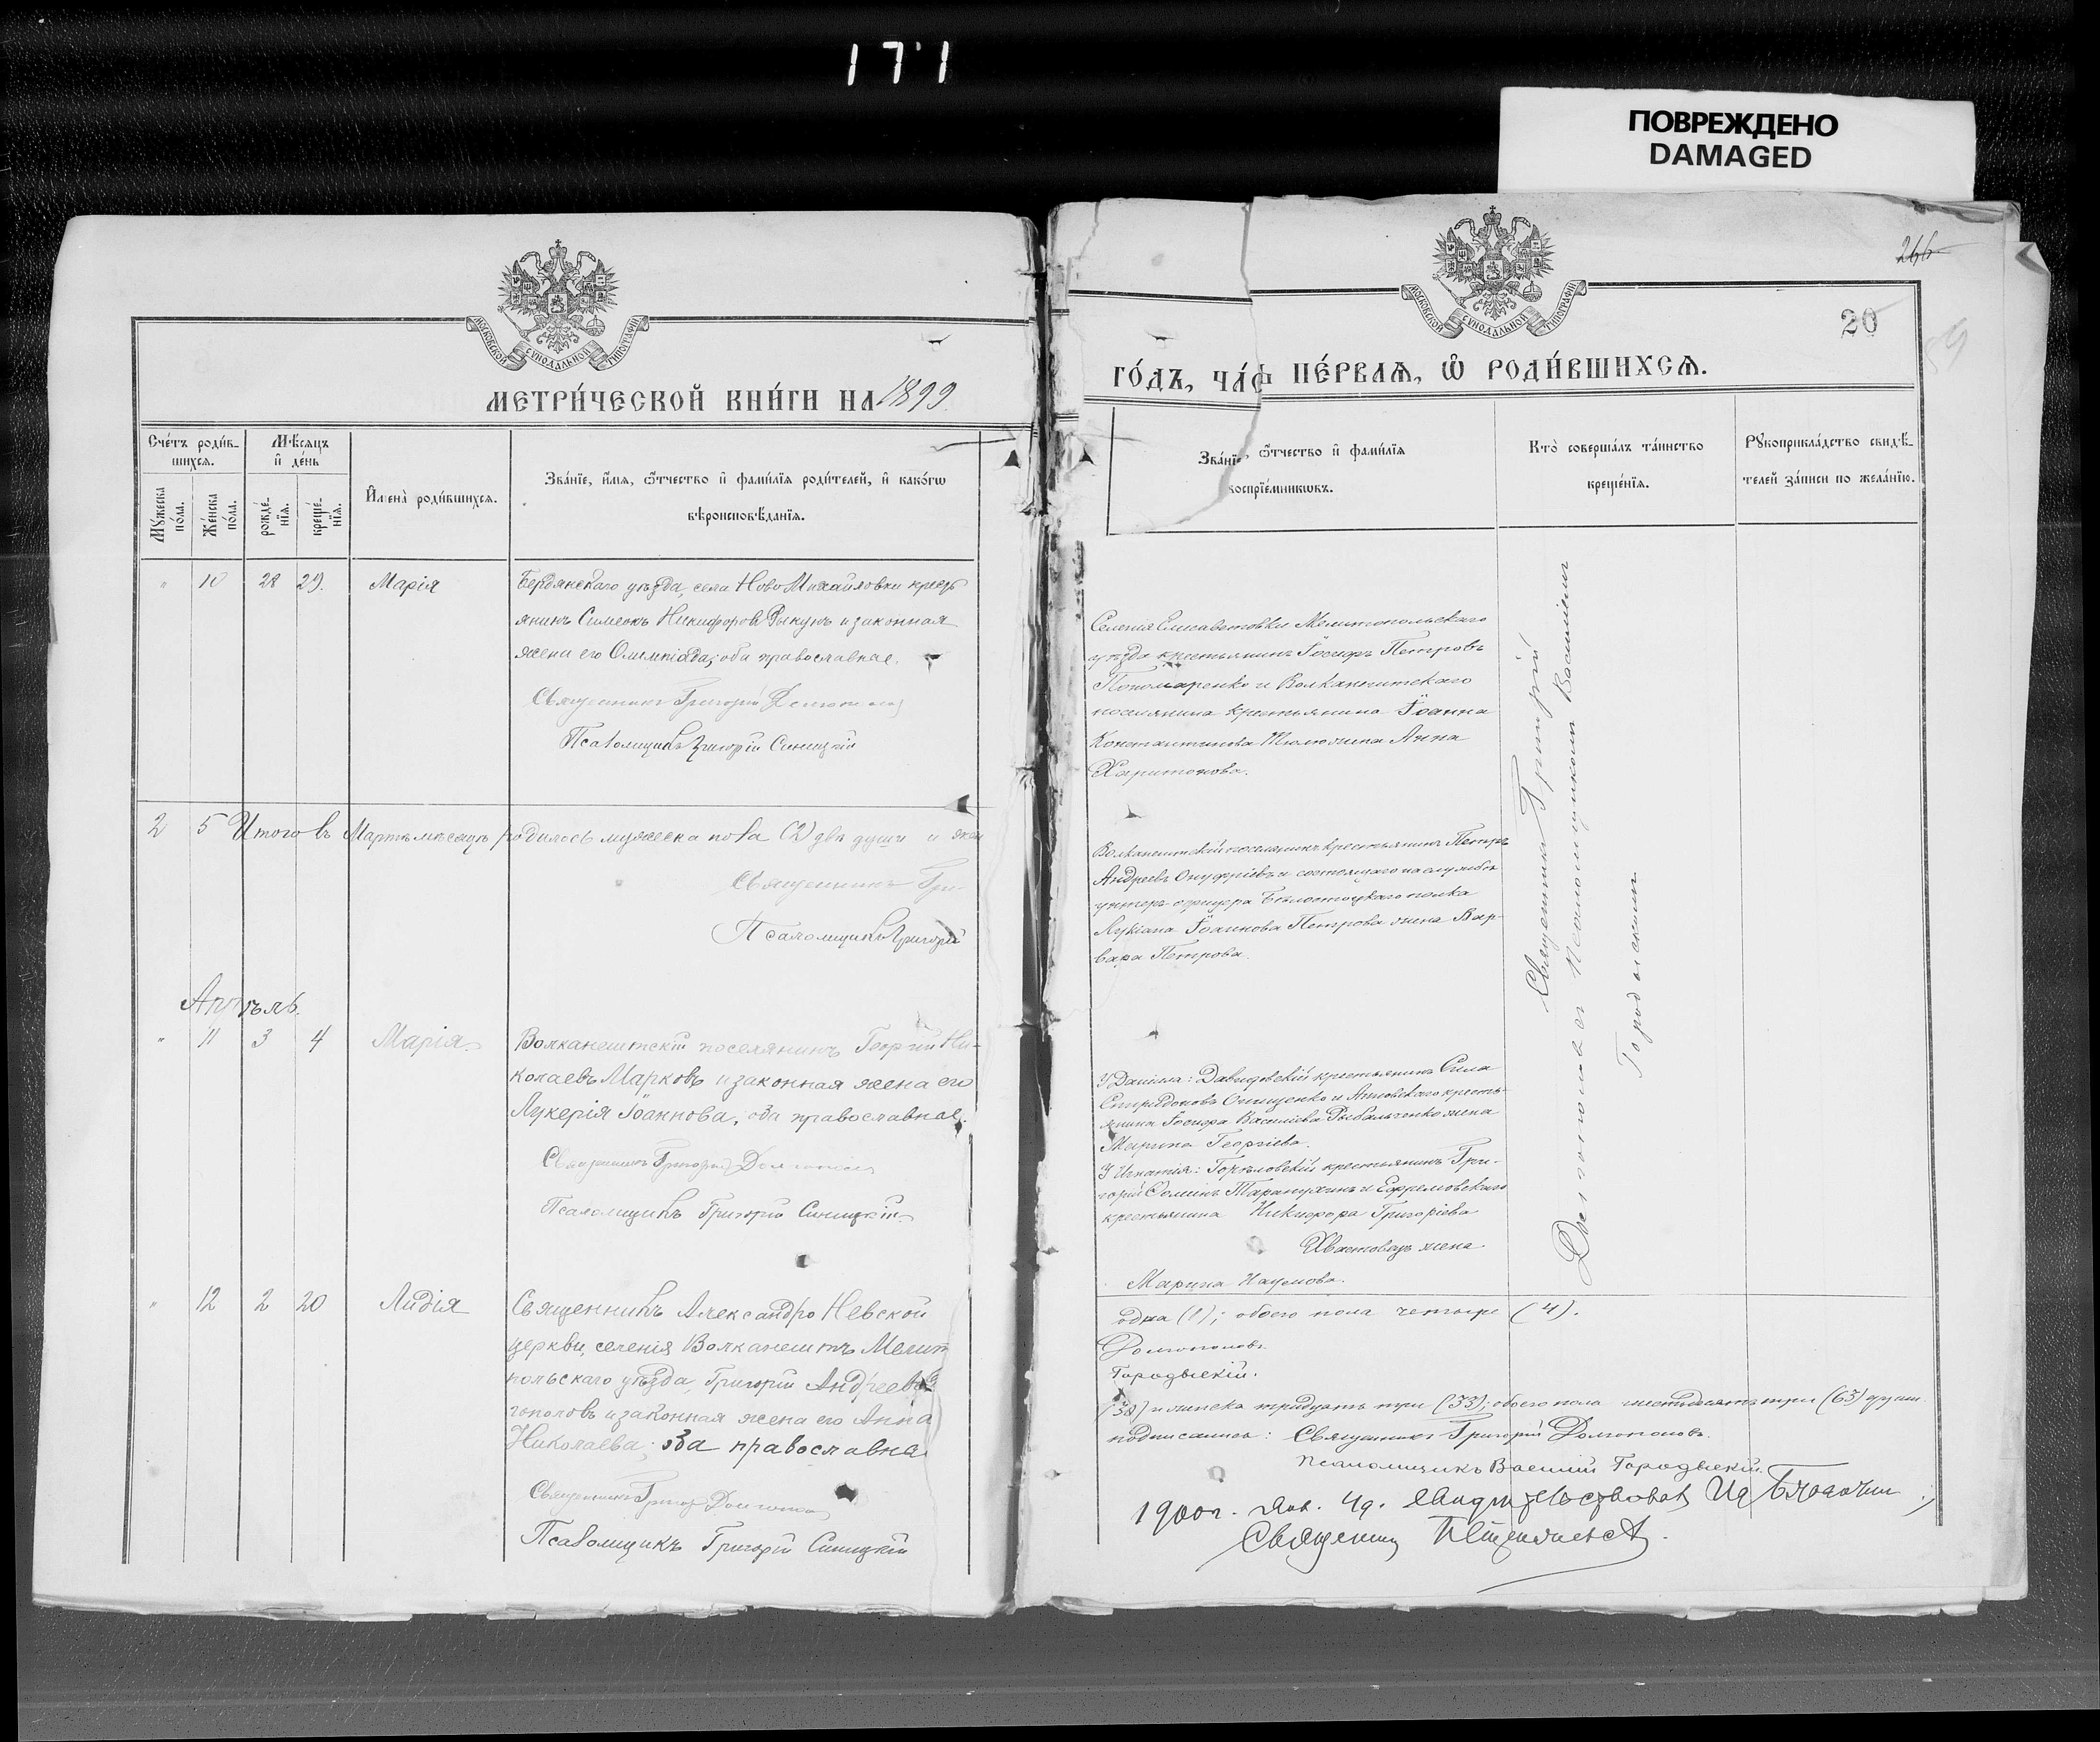 171
ПОВРЕЖДЕНО
DAMAGED
МОСКОВСКОЙ СѴНОДАЛЬНОЙ ТИПОГРАФІИ
МЕТРИ́ЧЕСКОЙ КНИ́ГИ НА 1899
Сче́тъ роди́в-
шихся.
Мѣ́сяцъ
и҆ де́нь
Мꙋ́жеска по́ла.
Же́нска по́ла.
рожде́-нїя.
креще́-нїя.
И҆мена̀ роди́вшихся.
Зва́нїе, и҆́мя, ѻ҆́тчество и҆ фами́лїя роди́телей, и҆ како́гѡ
вѣроисповѣ́данїя.
" 10 28 29. Марія
Бердянскаго уѣзда, села Ново Михайловки кресть
янинъ Симеонъ Никифоровъ и законная
жена его Олимпіада; оба православные.
Священникъ Григорій
Псаломщикъ Григорій Синицкій
2 5 Итого въ Мартѣ мѣсяцѣ родилось мужеска пола (2) двѣ души и жен
Священникъ Гри-
Псаломщикъ Григорій
Апрѣль.
" 11 3 4 Марія.
Волканештскій поселянинъ Георгій Ни-
колаевъ Марковъ и законная жена его
Лукерія Іоаннова, оба православные.
Священникъ Григорій Долгополовъ
Псаломщикъ Григорій Синицкій.
" 12 2 20 Лидія
Священникъ Александро Невской
церкви, селенія Волканештъ Мелит
польскаго уѣзда, Григорій Андреевъ
гополовъ и законная жена его Анна
Николаева; оба православна
Священникъ Григор Долгопол
Псаломщикъ Григорій Синицкій
266
МОСКОВСКОЙ СѴНОДАЛЬНОЙ ТИПОГРАФІИ
20
59
ГО́ДЪ, ЧА́СТЬ ПЕ́РВАЯ, Ѡ҆ РОДИ́ВШИХСЯ.
Зва́нїе, ѻ҆́тчество и҆ фами́лїя
воспрїе́мникѡвъ.
Кто̀ соверша́лъ та́инство
креще́нїя.
Рꙋкоприкла́дство свидѣ́-
телей за́писи по жела́нїю.
Селенія Елисаветовки Мелитопольскаго
уѣзда крестьянинъ Іосифъ Петровъ
Пономаренко и Волканештскаго
поселянина крестьянина Іоанна
Константинова жена Анна
Харитонова.
Волканештскій поселянинъ крестьянинъ Петръ
Андреевъ Онуфріевъ и состоящаго на службѣ
унтеръ офицера Бѣлостоцкаго полка
Лукіана Іоаннова Петрова жена Вар-
вара Петрова.
У Даніила: Давидовскій крестьянинъ Сила
Спиридоновъ Онищенко и кресть-
янина Іосифа Васильева Рыбальченко жена
Марина Георгіева.
У Игнатія: Горѣловскій крестьянинъ Гри-
горій Ѳоминъ и Ефремовскаго
крестьянина Никифора Григоріева
жена
Марина Наумова.
Священникъ Григорій
Долгополовъ съ псаломщикомъ Василіемъ
Городыскимъ
одна (1); обоего пола четыре (4).
Долгополовъ.
Городыскій.
(30) и женска тридцать три (33); обоего пола шестьдесятъ три (63) души.
подписались: Священникъ Григорій Долгополовъ.
псаломщикъ Василій Городыскій.
1900г. Янв. 4д.
Священникъ